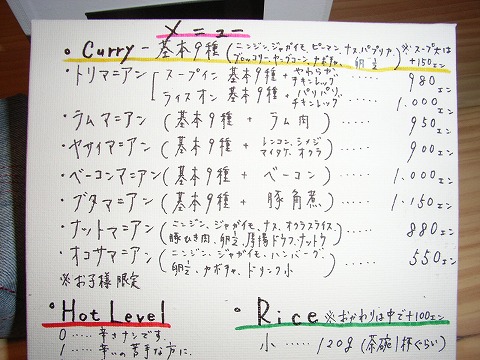 メニュー
・Curry - 基本9種 (ニンジン、ジャガイモ、ピーマン、ナス、パプリカ、 ※スープ大は
ブロッコリー、ヤングコーン、カボチャ、卵½) +150エン
・トリマニアン スープイン 基本9種 + やわらかチキンレッグ ····· 980エン
ライスオン 基本9種 + パリパリチキンレッグ ····· 1.000エン
・ラムマニアン (基本9種 + ラム肉) ····· 950エン
・ヤサイマニアン (基本9種 + レンコン、シメジ
マイタケ、オクラ) ····· 900エン
・ベーコンマニアン (基本9種 + ベーコン) ····· 1.000エン
・ブタマニアン (基本9種 + 豚角煮) ····· 1.150エン
・ナットマニアン (ニンジン、ジャガイモ、ナス、オクラスライス、
豚ひき肉、卵½、厚揚ドウフ、ナットウ) ····· 880エン
・オコサマニアン (ニンジン、ジャガイモ、ハンバーグ、
卵½、カボチャ、ドリンク小) ····· 550エン
※お子様限定
・Hot Level
0 ···· 辛さナシです。
1 ···· 辛いの苦手な方に。
・Rice ※おかわりは中で+100エン
小 ···· 120g (茶碗1杯ぐらい)